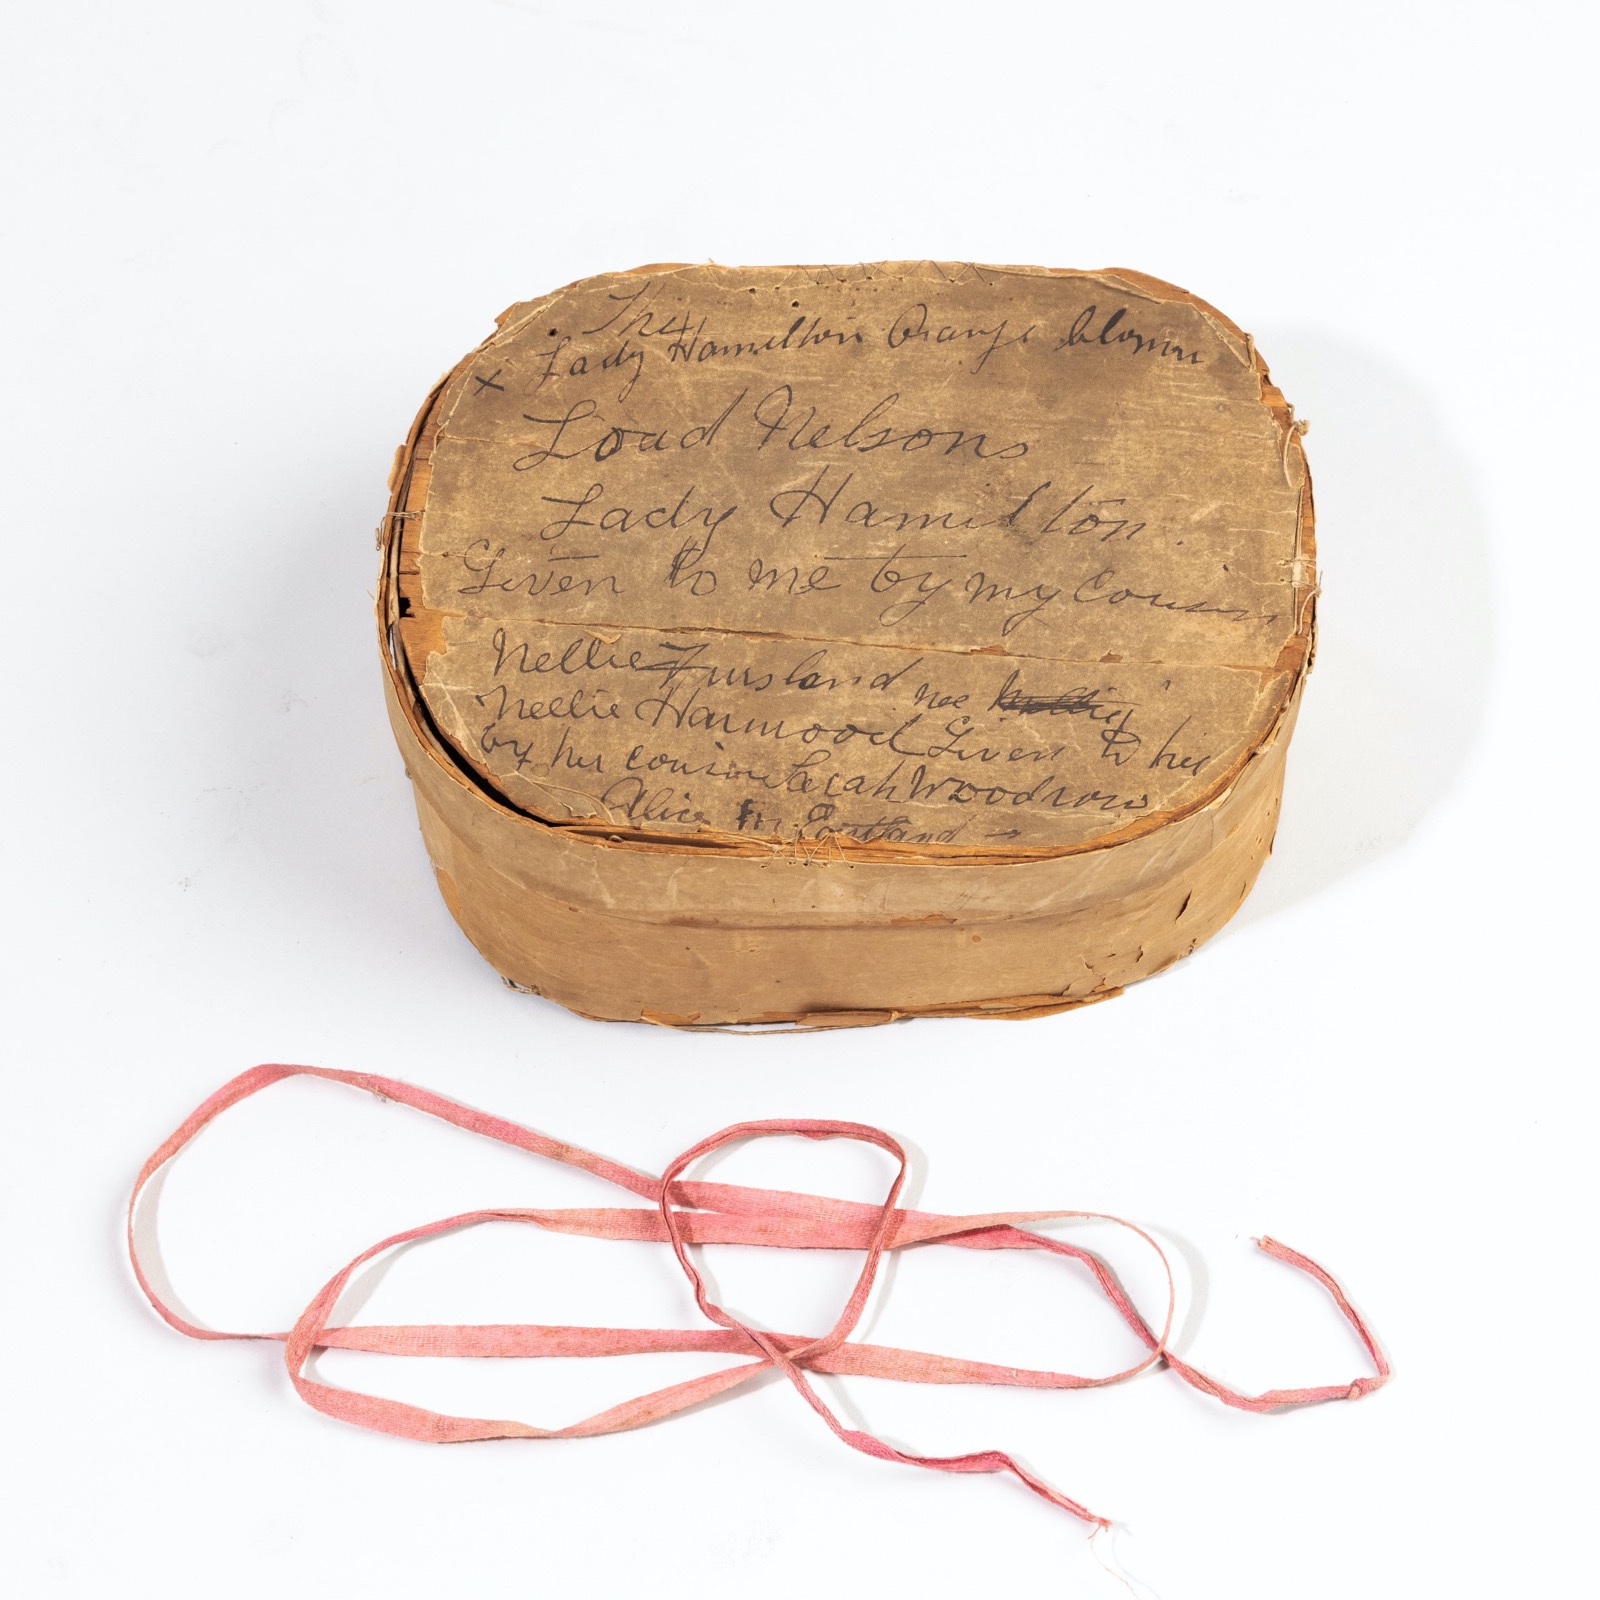 The
x Lady Hamilton Orange blossom
Load Nelsons
Lady Hamilton.
Given to me by my Cousin
Nellie Fursland nee
Nellie Harwood Given to her
by her cousin Sarah Woodrow
Alice